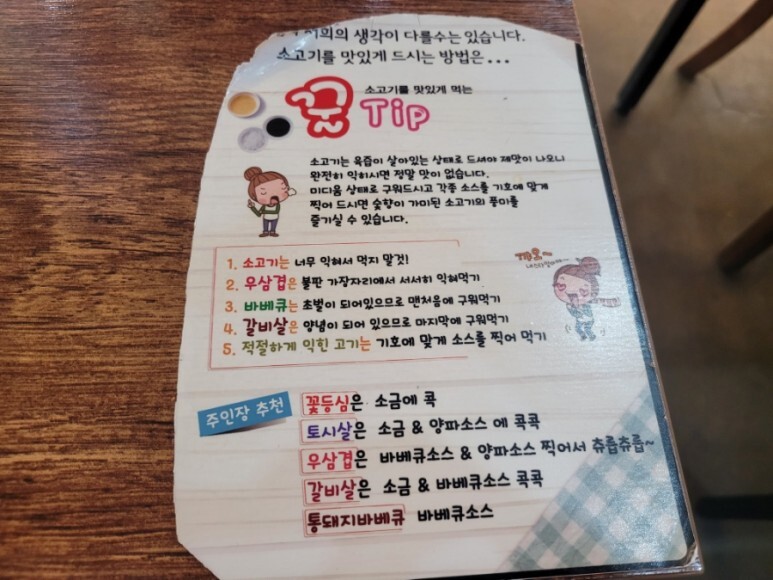 생각이 다를수는 있습니다.
소고기를 맛있게 드시는 방법은...
소고기를 맛있게 먹는
꿀
Tip
소고기는 육즙이 살아있는 상태로 드셔야 제맛이 나오니
완전히 익히시면 정말 맛이 없습니다.
미디움 상태로 구워드시고 각종 소스를 기호에 맞게
찍어 드시면 숯향이 가미된 소고기의 풍미를
즐기실 수 있습니다.
1. 소고기는 너무 익혀서 먹지 말것!
2. 우삼겹은 불판 가장자리에서 서서히 익혀먹기
3. 바베큐는 초벌이 되어있으므로 맨처음에 구워먹기
4. 갈비살은 양념이 되어 있으므로 마지막에 구워먹기
5. 적절하게 익힌 고기는 기호에 맞게 소스를 찍어 먹기
주인장 추천
꽃등심은 소금에 콕
토시살은 소금 & 양파소스 에 콕콕
우삼겹은 바베큐소스 & 양파소스 찍어서 츄릅츄릅~
갈비살은 소금 & 바베큐소스 콕콕
통돼지바베큐 바베큐소스